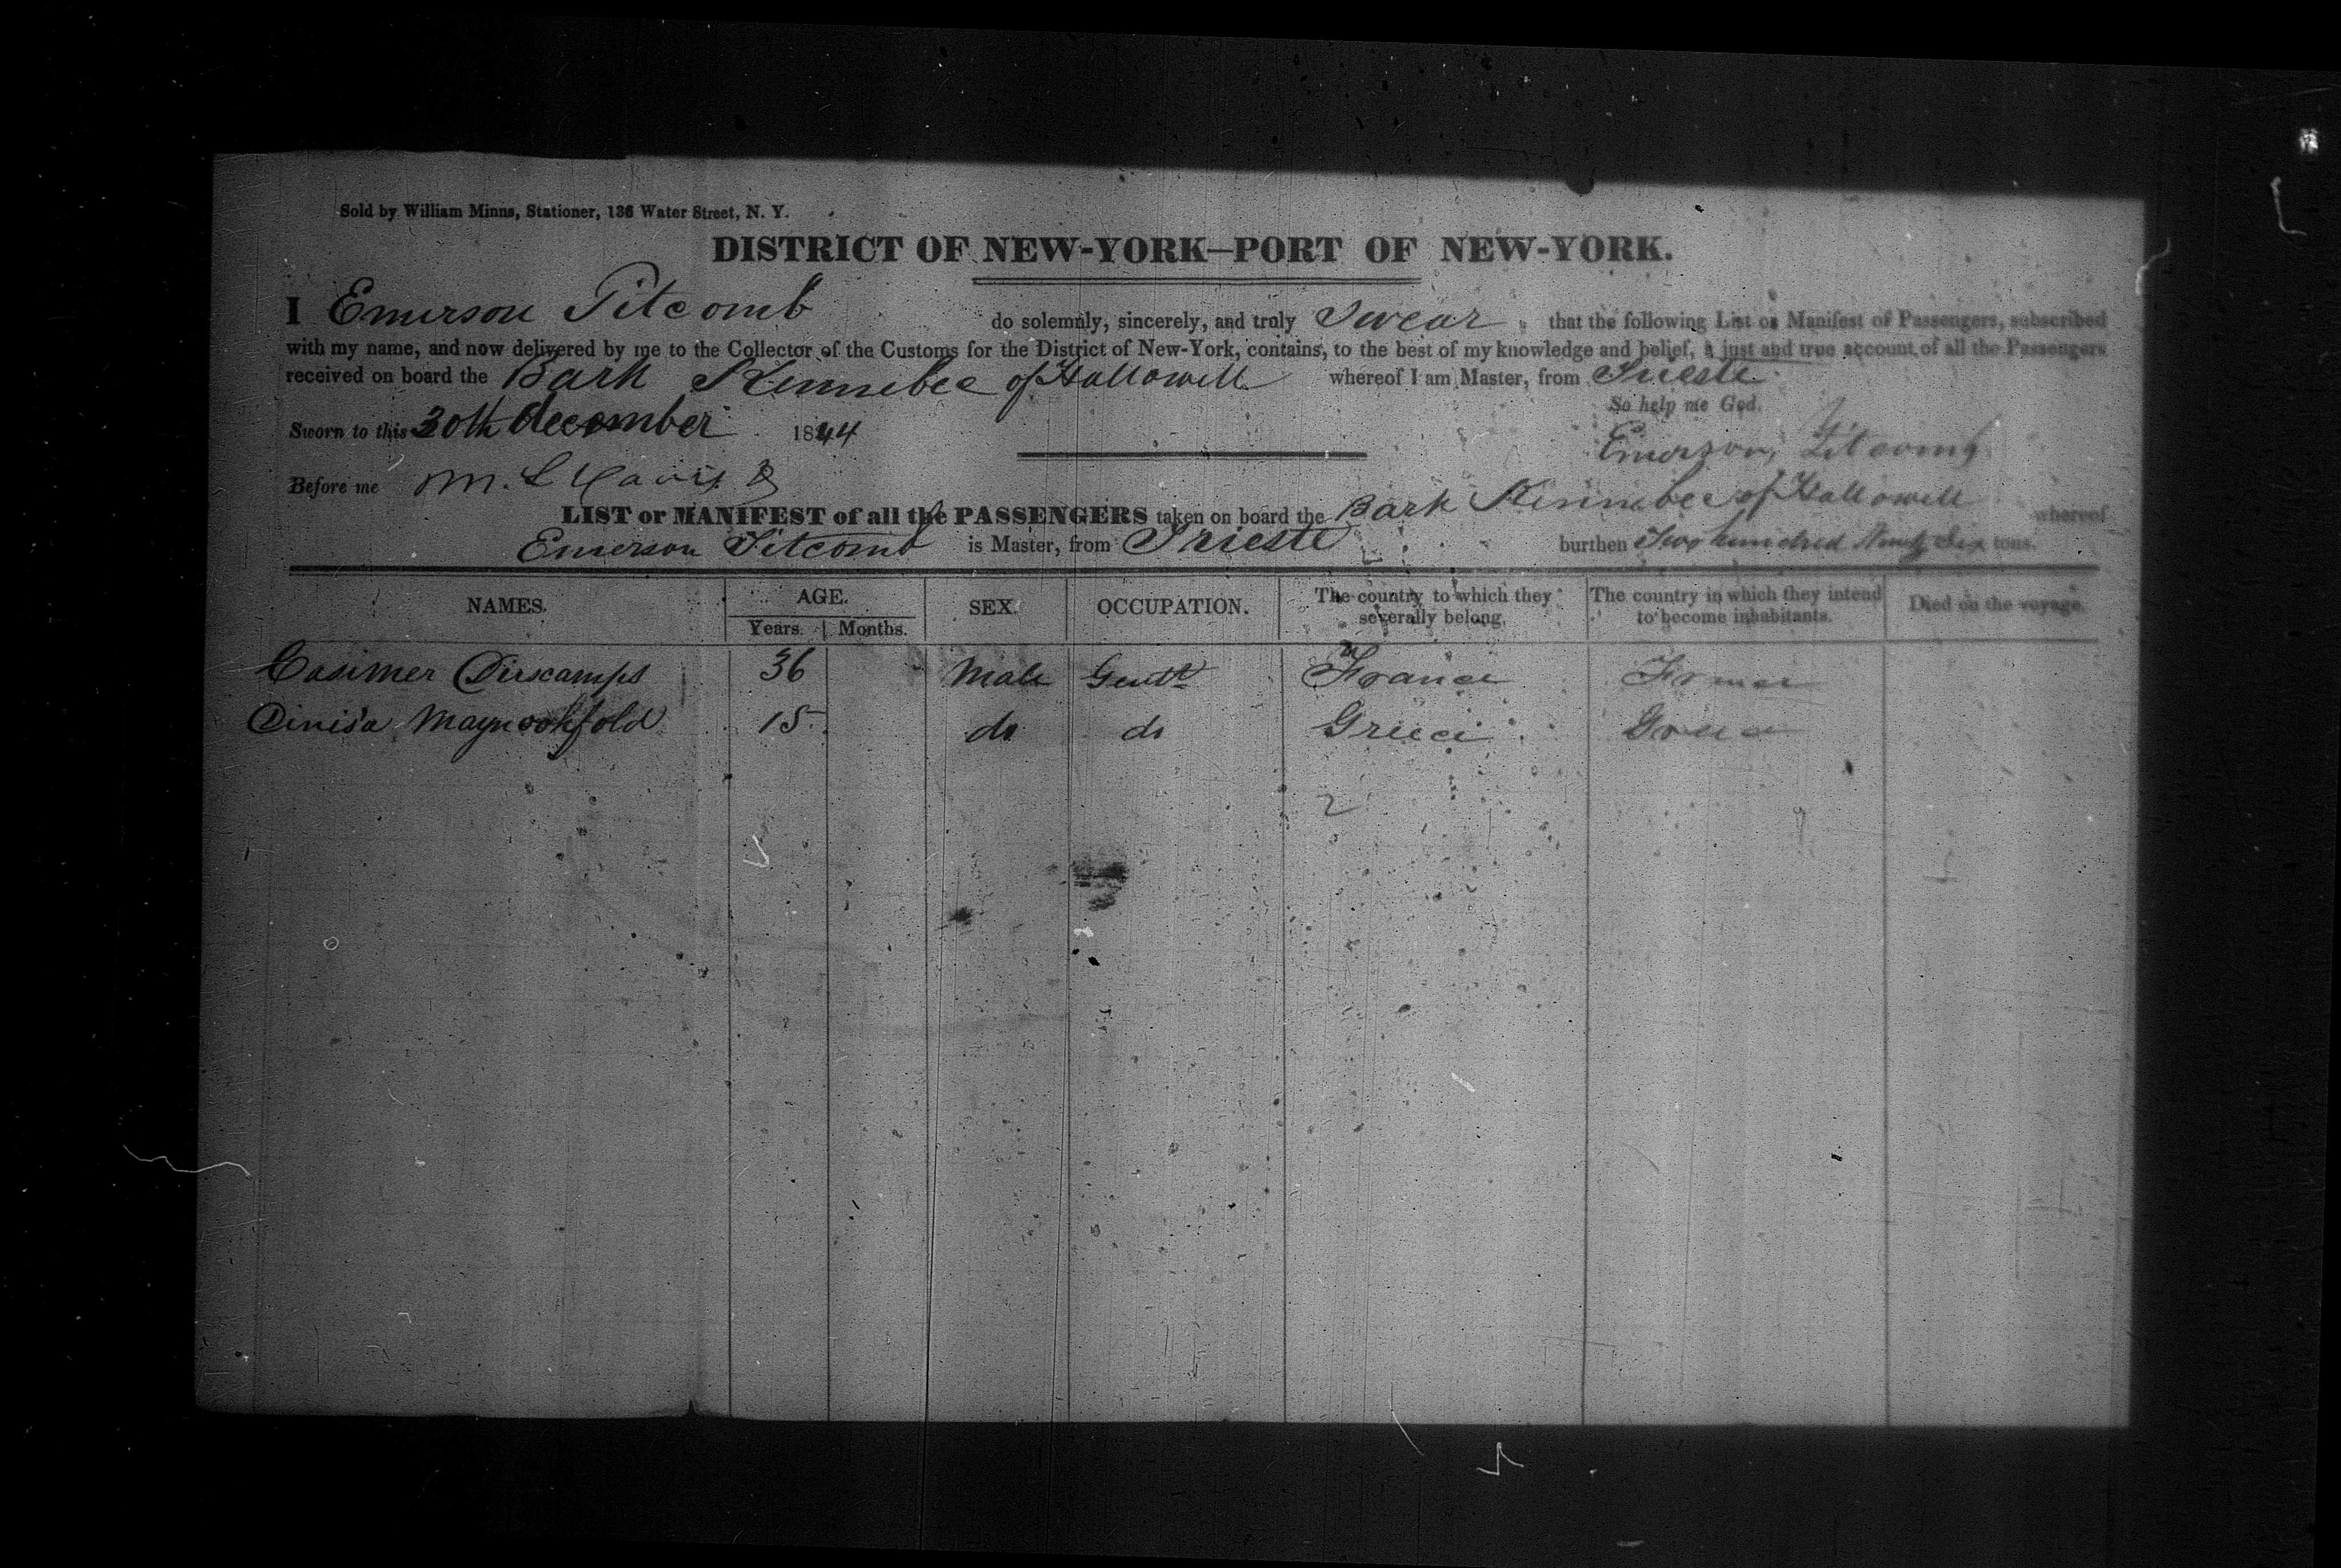 Sold by William Minns, Stationer, 136 Water Street, N. Y.
DISTRICT OF NEW-YORK—PORT OF NEW-YORK.
I Emerson Titcomb do solemnly, sincerely, and truly Swear that the following List or Manifest of Passengers, subscribed
with my name, and now delivered by me to the Collector of the Customs for the District of New-York, contains, to the best of my knowledge and belief, a just and true account of all the Passengers
received on board the Bark Kennebec of Hallowell whereof I am Master, from Trieste
So help me God.
Sworn to this 30th december 1844
Emerson Titcomb
Before me M. L Davis
LIST or MANIFEST of all the PASSENGERS taken on board the Bark Kennebec of Hallowell whereof
Emerson Titcomb is Master, from Trieste burthen Two hundred Ninety Six tons.
NAMES. AGE. SEX. OCCUPATION. The country to which they severally belong. The country in which they intend to become inhabitants. Died on the voyage.
Years. Months.
Casimer Discamps 36 Male Gentl France France
15 do do Greece Greece
2